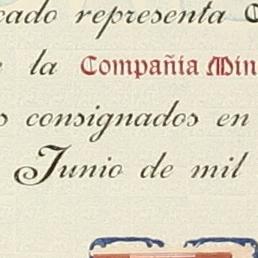 cado representa
la Compañía Min
consignados en
Junio de mil